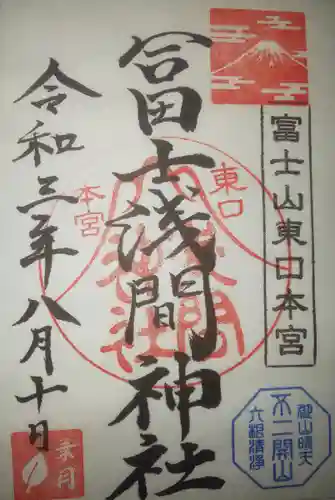 東口
富士山東口本宮
冨士浅間神社
東口
本宮
浅間
神社
令和三年八月十日
御山晴天
不二開山
六根清浄
葉月